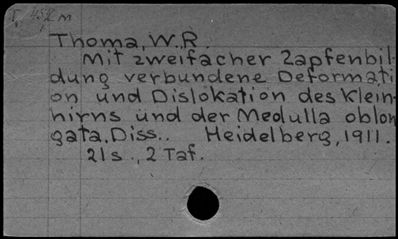 Thoma, W.R.
Mit zweifacher Zapfenbil-
dung verbundene Deformati
on und Dislokation des Klein-
hirns und der Medulla oblon
gata. Diss.. Heidelberg, 1911.
21 s., 2 Taf.